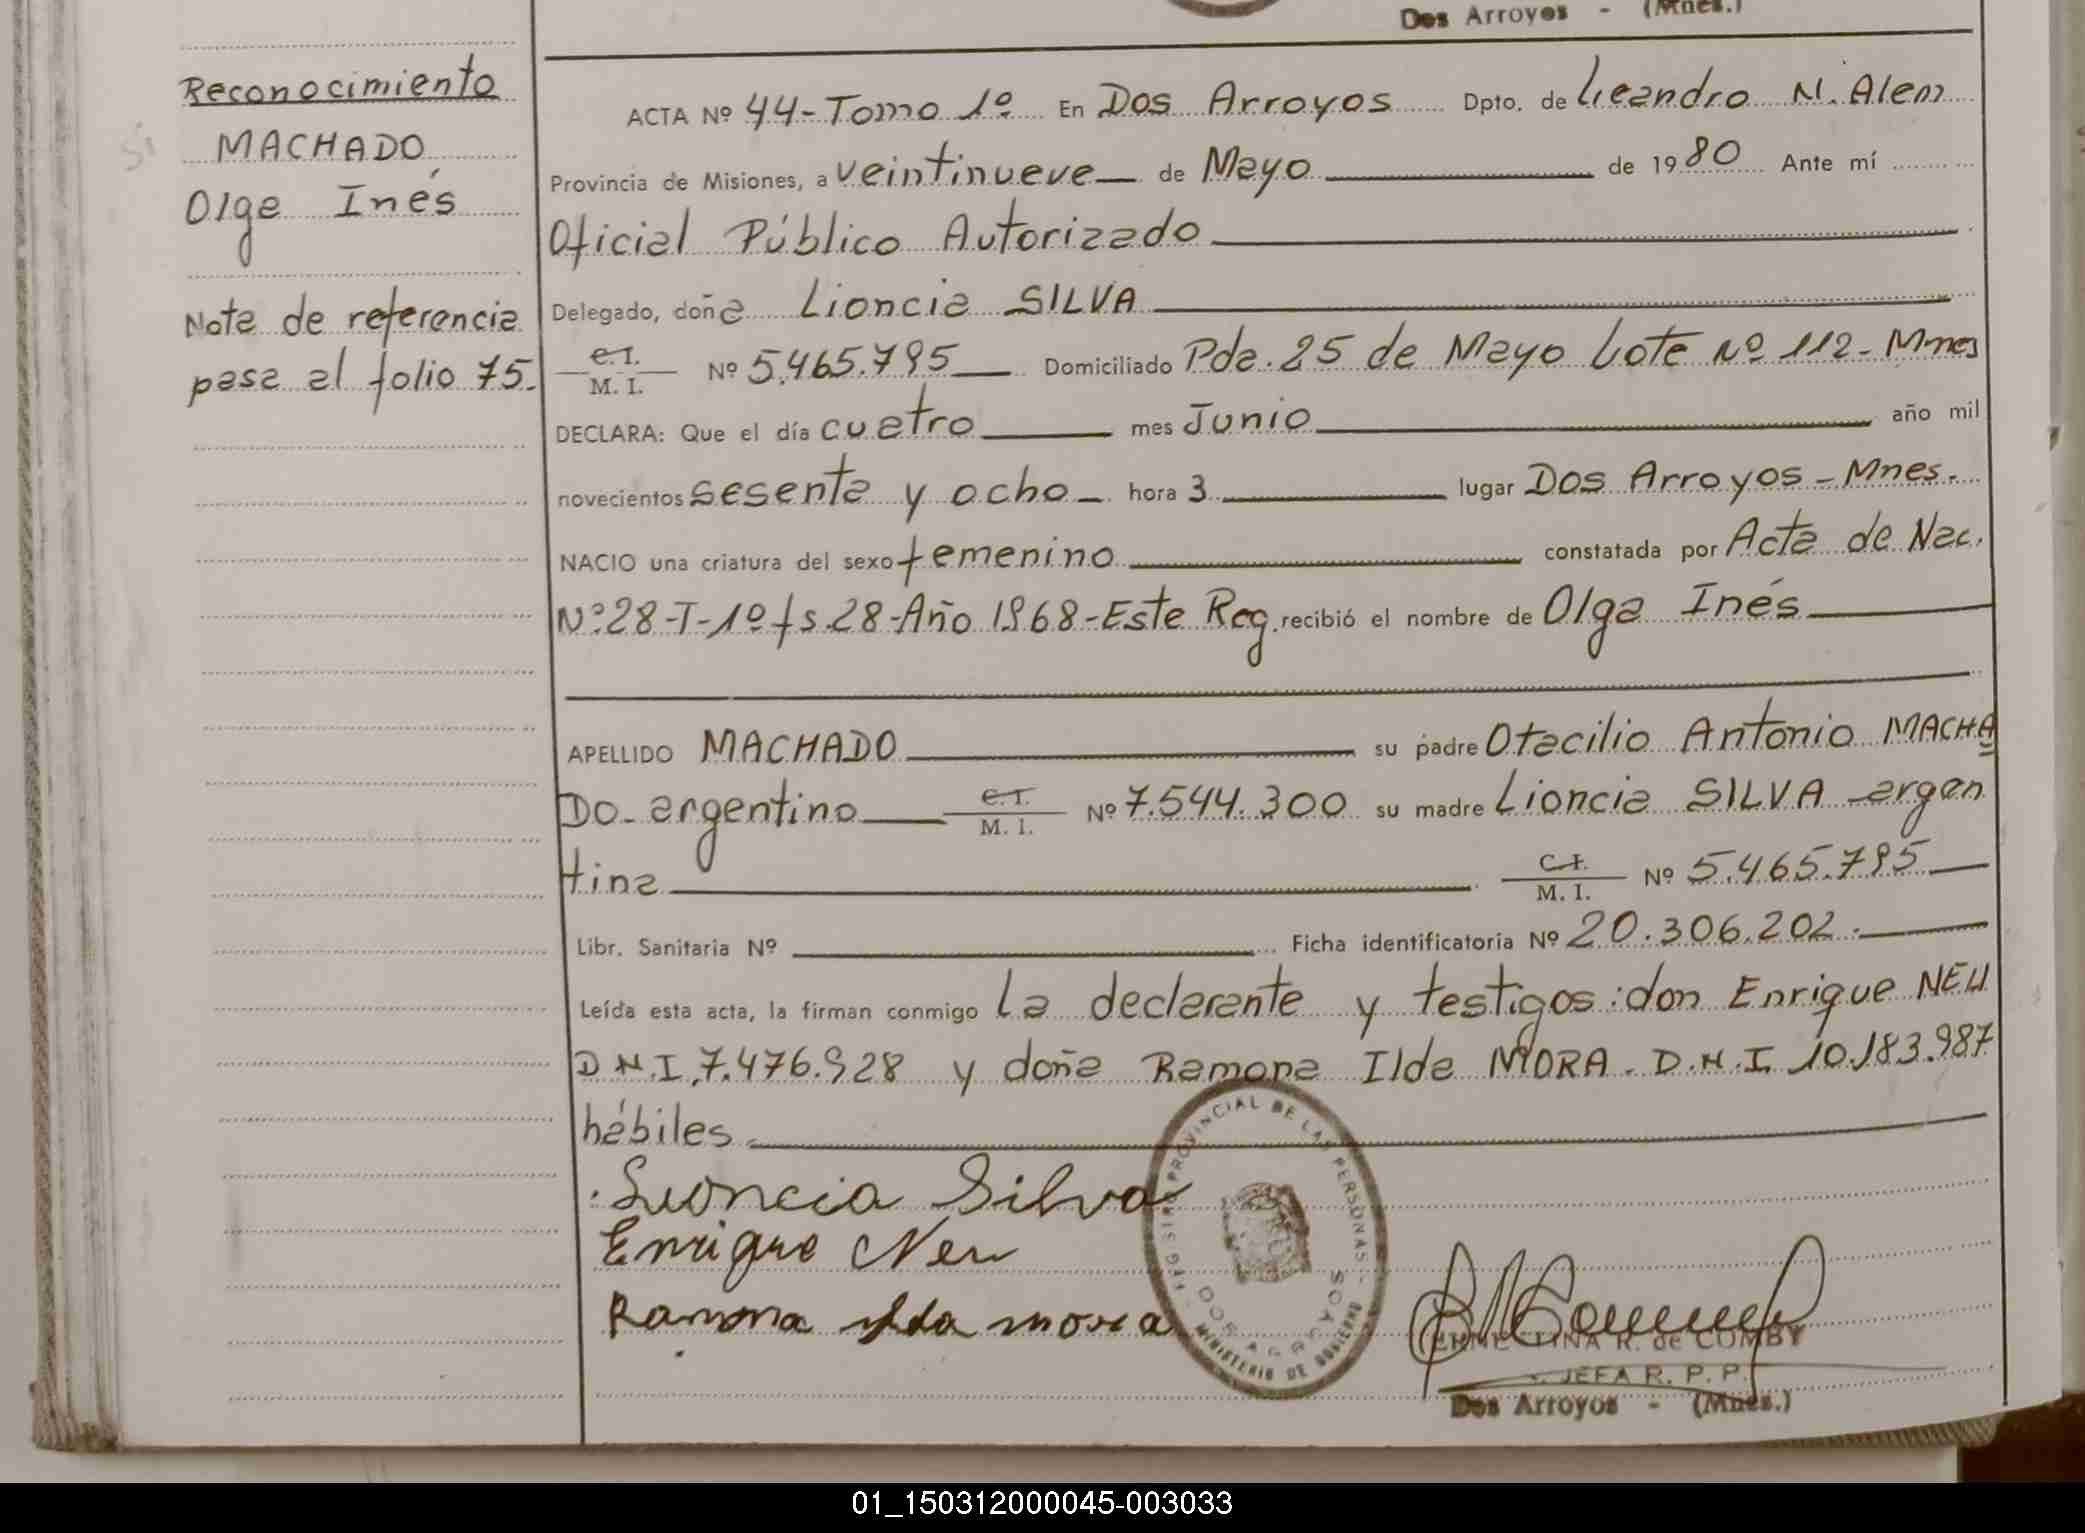 Dos Arroyos - (Mnes.)
Reconocimiento
MACHADO
Olga Inés
Nota de referencia
pasa al folio 75.
ACTA Nº 44-Tomo 1º En Dos Arroyos Dpto. de Leandro N. Alem
Provincia de Misiones, a veintinueve de Mayo de 1980 Ante mí
Oficial Público Autorizado
Delegado, doña Lioncia SILVA
C.I.
M. I. Nº 5.465.795 Domiciliado Pda. 25 de Mayo Lote Nº 112- Mnes
DECLARA: Que el día cuatro mes Junio año mil
novecientos sesenta y ocho hora 3 lugar Dos Arroyos - Mnes.
NACIO una criatura del sexo femenino constatada por Acta de Nac.
Nº 28-T-1º fs. 28-Año 1968-Este Reg. recibió el nombre de Olga Inés
APELLIDO MACHADO su padre Otacilio Antonio MACHA
DO- argentino C.I.
M. I. Nº 7.544.300 su madre Lioncia SILVA argen
tina C.I.
M. I. Nº 5.465.795
Libr. Sanitaria Nº Ficha identificatoria Nº 20.306.202.
Leída esta acta, la firman conmigo la declarante y testigos: don Enrique NEU
D.N.I. 7.476.928 y doña Ramona Ilda MORA. D.N.I. 10.183.987
hábiles
Lioncia Silva
Enrique Neu
Ramona ylda mora
PROVINCIAL DE LAS PERSONAS
DOS ARROYOS
MINISTERIO DE GOBIERNO
ERNESTINA R. de COMBY
JEFA R. P. P.
Dos Arroyos - (Mnes.)
01_150312000045-003033